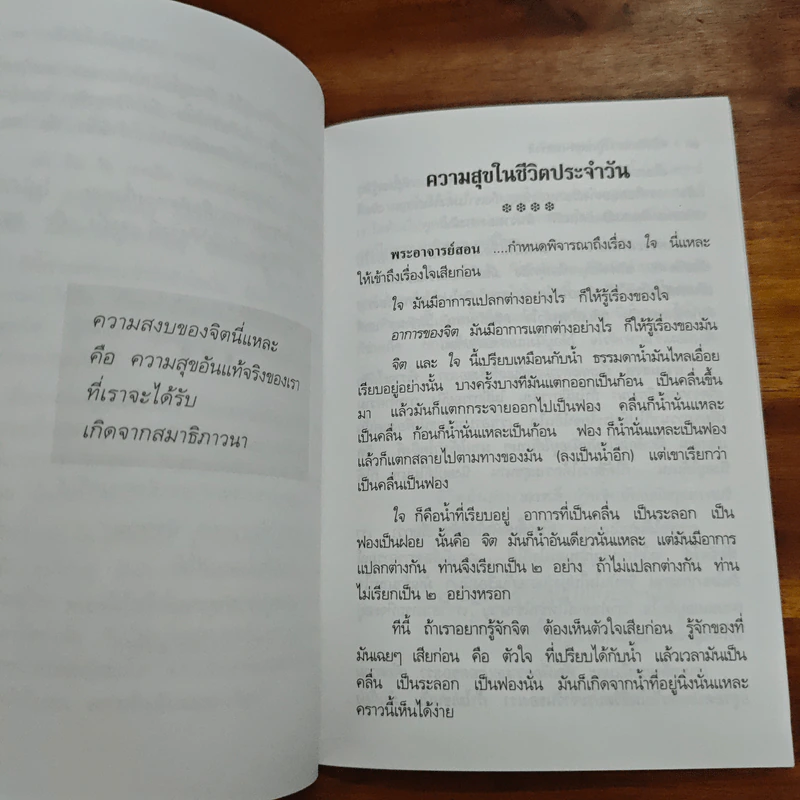 ความสงบของจิตนี่แหละ
คือ ความสุขอันแท้จริงของเรา
ที่เราจะได้รับ
เกิดจากสมาธิภาวนา
ความสุขในชีวิตประจำวัน
❄ ❄ ❄ ❄
พระอาจารย์สอน ....กำหนดพิจารณาถึงเรื่อง ใจ นี่แหละ
ให้เข้าถึงเรื่องใจเสียก่อน
ใจ มันมีอาการแปลกต่างอย่างไร ก็ให้รู้เรื่องของใจ
อาการของจิต มันมีอาการแตกต่างอย่างไร ก็ให้รู้เรื่องของมัน
จิต และ ใจ นี้เปรียบเหมือนกับน้ำ ธรรมดาน้ำมันไหลเอื่อย
เรียบอยู่อย่างนั้น บางครั้งบางทีมันแตกออกเป็นก้อน เป็นคลื่นขึ้น
มา แล้วมันก็แตกกระจายออกไปเป็นฟอง คลื่นก็น้ำนั่นแหละ
เป็นคลื่น ก้อนก็น้ำนั่นแหละเป็นก้อน ฟอง ก็น้ำนั่นแหละเป็นฟอง
แล้วก็แตกสลายไปตามทางของมัน (ลงเป็นน้ำอีก) แต่เขาเรียกว่า
เป็นคลื่นเป็นฟอง
ใจ ก็คือน้ำที่เรียบอยู่ อาการที่เป็นคลื่น เป็นระลอก เป็น
ฟองเป็นฝอย นั้นคือ จิต มันก็น้ำอันเดียวนั่นแหละ แต่มันมีอาการ
แปลกต่างกัน ท่านจึงเรียกเป็น ๒ อย่าง ถ้าไม่แปลกต่างกัน ท่าน
ไม่เรียกเป็น ๒ อย่างหรอก
ทีนี้ ถ้าเราอยากรู้จักจิต ต้องเห็นตัวใจเสียก่อน รู้จักของที่
มันเฉยๆ เสียก่อน คือ ตัวใจ ที่เปรียบได้กับน้ำ แล้วเวลามันเป็น
คลื่น เป็นระลอก เป็นฟองนั่น มันก็เกิดจากน้ำที่อยู่นิ่งนั่นแหละ
คราวนี้เห็นได้ง่าย